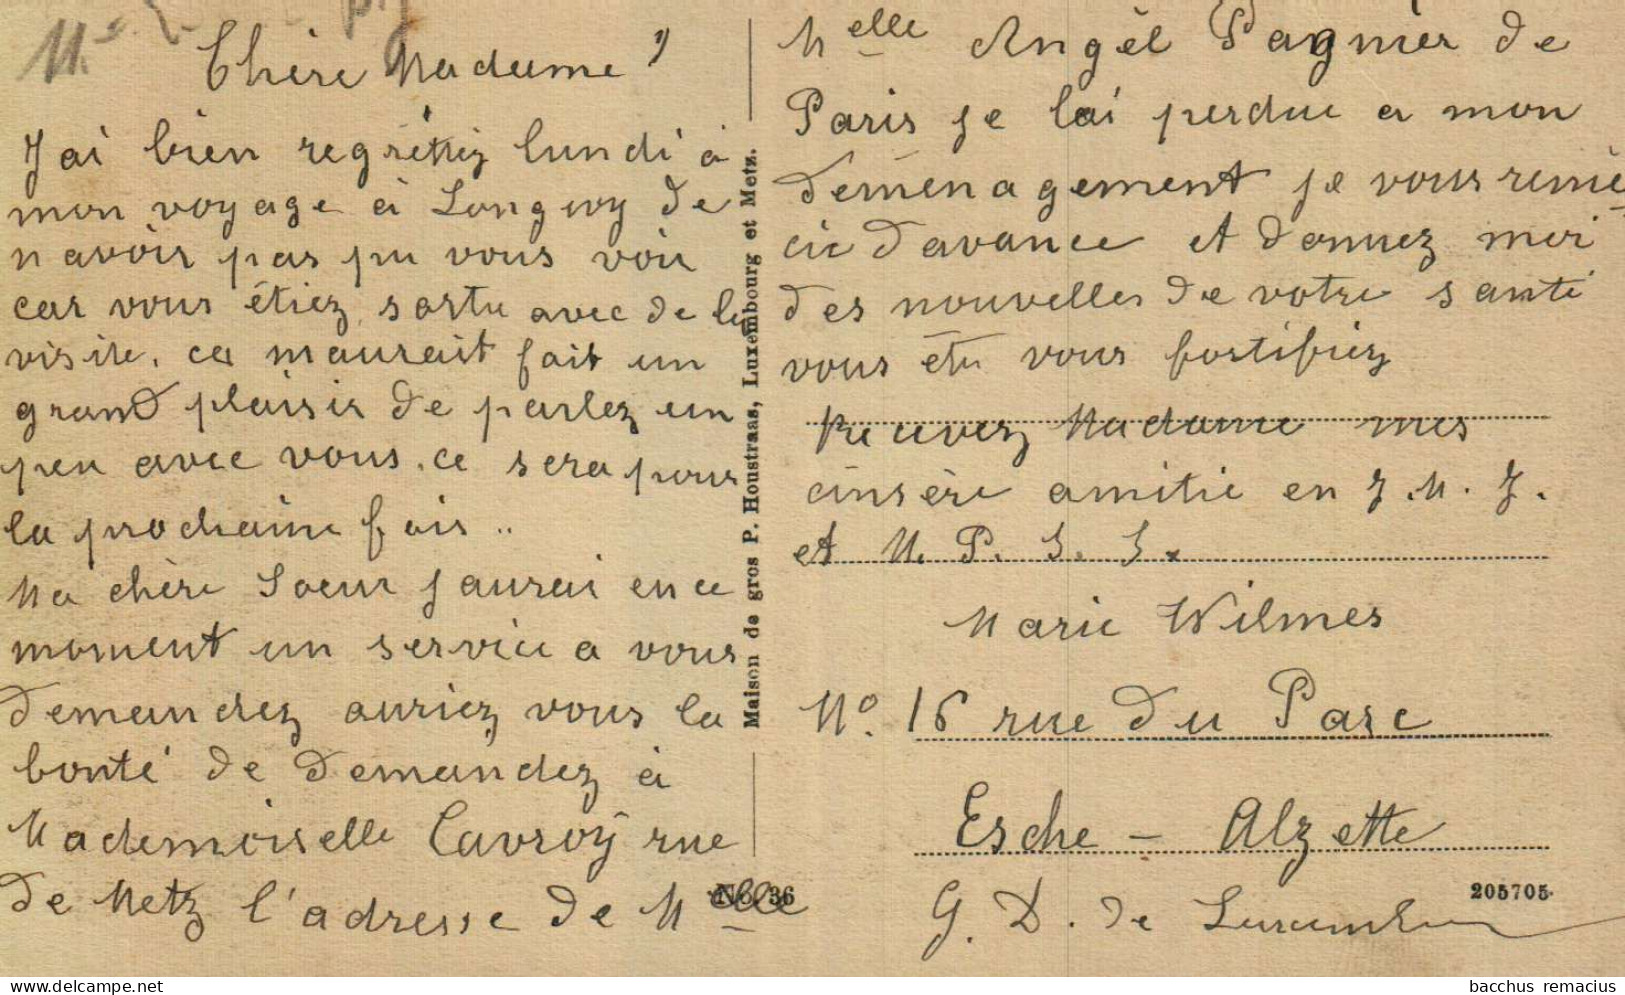 Chère Madame
J ai bien regrettez lundi à
mon voyage à Longwy de
n avoir pas pu vous voir
car vous étiez sortu avec de la
visite. ca maurait fait un
grand plaisir de parlez un
peu avec vous. ce sera pour
la prochaine fois ..
Ma chère Soeur j aurai en ce
moment un service a vous
demandez auriez vous la
bonté de demandez à
Mademoiselle Cavroy rue
de Metz l'adresse de Melle
Melle Angèl Pagnier de
Paris je lai perdue a mon
déménagement je vous remè
cie d avance et donnez moi
des nouvelles de votre santé
vous étu vous fortifiez
Recevez Madame mes
cinsère amitie en J. M. J.
et M. P. S. S.
Marie Wilmes
No. 16 rue du Parc
Esche - Alzette
G. D. de Luxemb
Maison de gros P. Houstraas, Luxembourg et Metz.
No. 36
205705
bacchus remacius